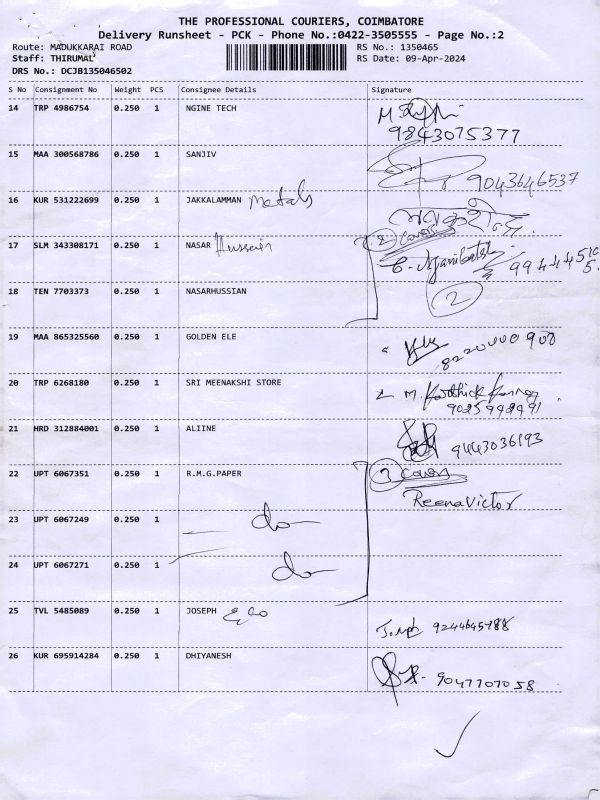 THE PROFESSIONAL COURIERS, COIMBATORE
Delivery Runsheet - PCK - Phone No.:0422-3505555 - Page No.:2
Route: MADUKKARAI ROAD RS No.: 1350465
Staff: THIRUMAL RS Date: 09-Apr-2024
DRS No.: DCJB135046502
S No Consignment No Weight PCS Consignee Details Signature
14 TRP 4986754 0.250 1 NGINE TECH
9843075377
15 MAA 300568786 0.250 1 SANJIV
9043646537
16 KUR 531222699 0.250 1 JAKKALAMMAN Metals
17 SLM 343308171 0.250 1 NASAR Hussain 2 covers
18 TEN 7703373 0.250 1 NASARHUSSIAN 2
19 MAA 865325560 0.250 1 GOLDEN ELE
8220000900
20 TRP 6268180 0.250 1 SRI MEENAKSHI STORE M. Karthick
21 HRD 312884001 0.250 1 ALIINE 9443036193
22 UPT 6067351 0.250 1 R.M.G.PAPER 3 covers
Reena Victor
23 UPT 6067249 0.250 1 — do —
24 UPT 6067271 0.250 1 do —
25 TVL 5485089 0.250 1 JOSEPH
26 KUR 695914284 0.250 1 DHIYANESH 9047707058